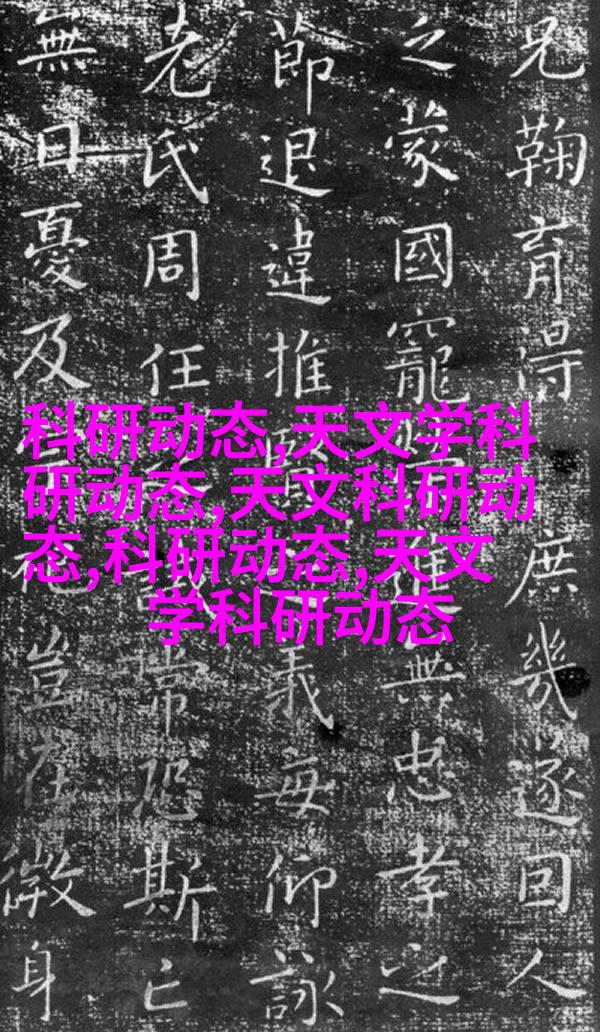 兄鞠育得庶幾遂回人
之蒙國寵進無忠孝之
節退違推賢義每仰詠
老氏周任常恐斯亡
無日憂及祀豈在微身
科研动态,天文学科
研动态,天文科研动
态,科研动态,天文
学科研动态